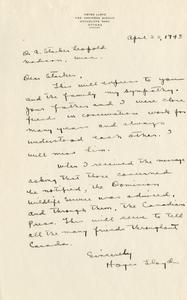 HOYES LLOYD
582 MARIPOSA AVENUE
ROCKCLIFFE PARK
OTTAWA
April 22, 1948
Dr. A. Starker Leopold
Madison, Wisc.
Dear Starker,
This will express to you
and the family my sympathy.
Your father and I were close
friends in conservation work for
many years and always
understood each other. I
will miss him.
When I received the message
asking that those concerned
be notified, the Dominion
Wildlife Service was advised,
and through them, the Canadian
Press. This will serve to tell
all the many friends throughout
Canada.
Sincerely
Hoyes Lloyd